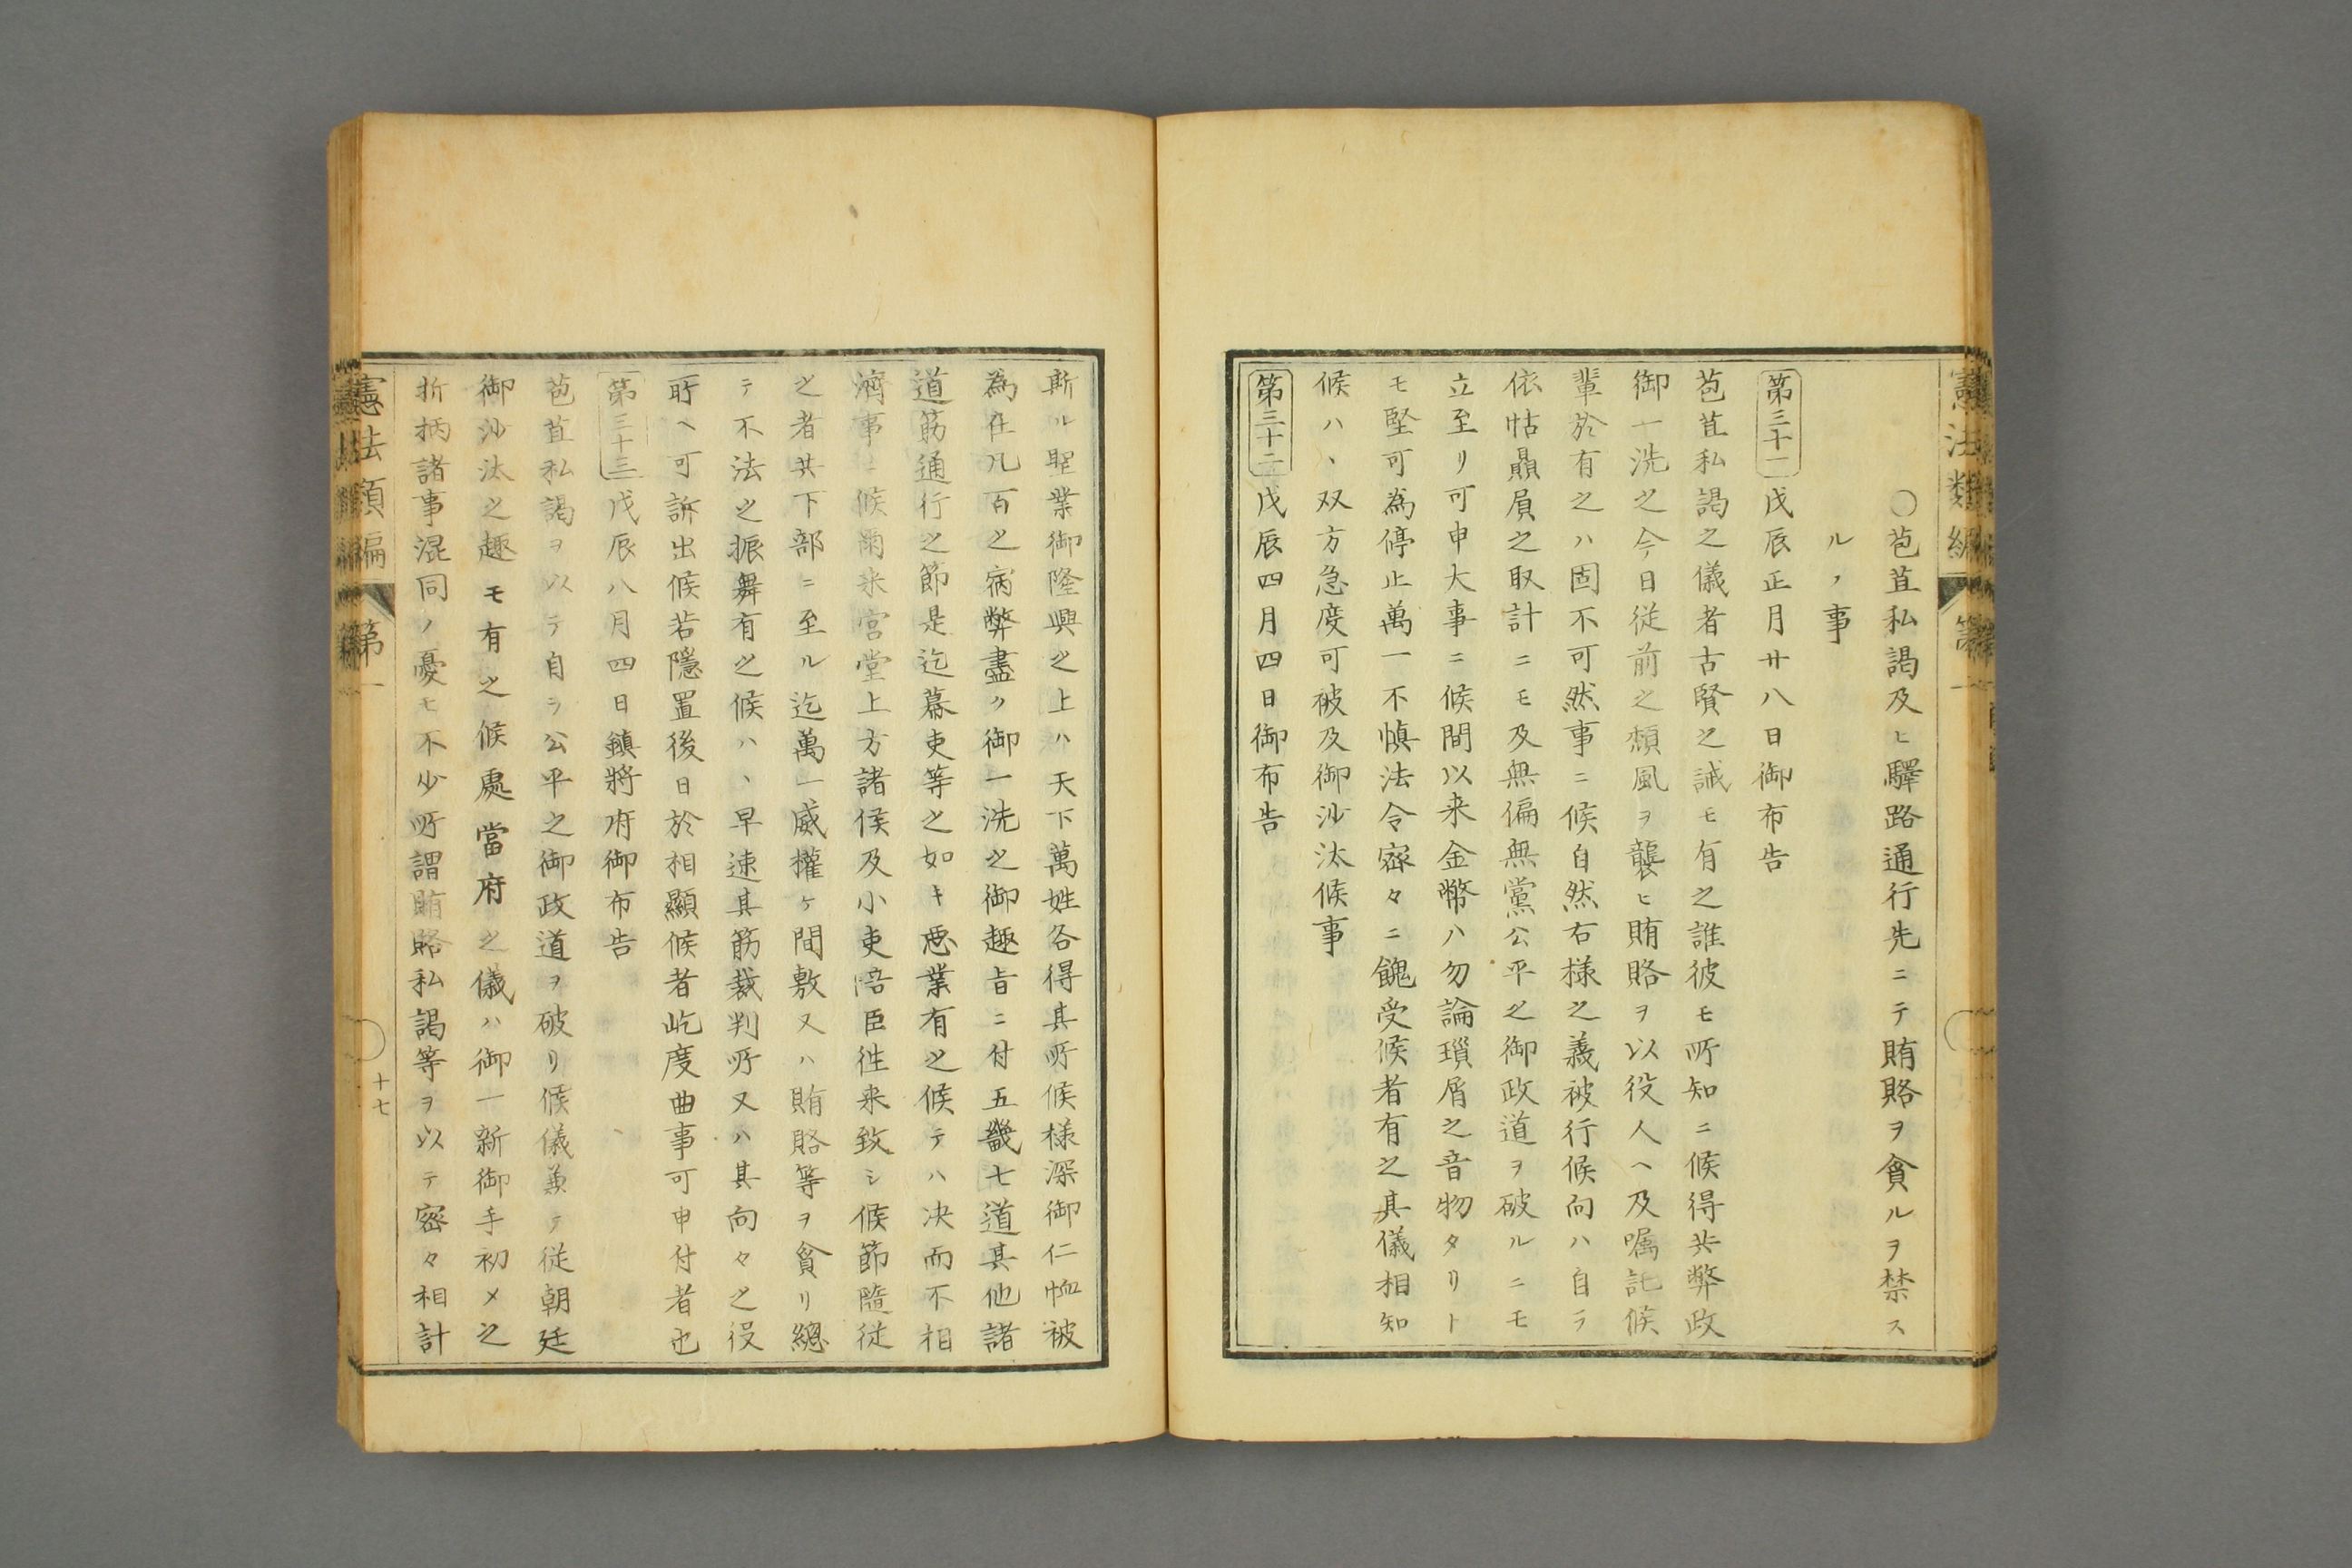 憲法類編 第一
〇苞苴私謁及ヒ驛路通行先ニテ賄賂ヲ貪ルヲ禁ス
ルノ事
第三十一 戊辰正月廿八日御布告
苞苴私謁之儀者古賢之誡モ有之誰彼モ所知ニ候得共弊政
御一洗之今日従前之頽風ヲ襲ヒ賄賂ヲ以役人ヘ及嘱託候
輩於有之ハ固不可然事ニ候自然右様之義被行候向ハ自ラ
依怙贔屓之取計ニモ及無偏無黨公平之御政道ヲ破ルニモ
立至リ可申大事ニ候間以来金幣ハ勿論瑣屑之音物タリト
モ堅可為停止萬一不愼法令窃々ニ餽受候者有之其儀相知
候ハヽ双方急度可被及御沙汰候事
第三十二 戊辰四月四日御布告
斯ル聖業御隆興之上ハ天下萬姓各得其所候様深御仁恤被
為在凡百之病弊盡ク御一洗之御趣旨ニ付五畿七道其他諸
道筋通行之節是迄幕吏等之如キ悪業有之候テハ決而不相
濟事ニ候爾来宮堂上方諸侯及小吏陪臣徃来致シ候節隨従
之者共下部ニ至ル迄萬一威權ケ間敷又ハ賄賂等ヲ貪リ總
テ不法之振舞有之候ハヽ早速其筋裁判所又ハ其向々之役
所ヘ可訴出候若隱置後日於相顯候者屹度曲事可申付者也
第三十三 戊辰八月四日鎮将府御布告
苞苴私謁ヲ以テ自ラ公平之御政道ヲ破リ候儀兼テ従朝廷
御沙汰之趣モ有之候處當府之儀ハ御一新御手初メ之
折柄諸事混同ノ憂モ不少所謂賄賂私謁等ヲ以テ密々相計
憲法類編 第一
十七